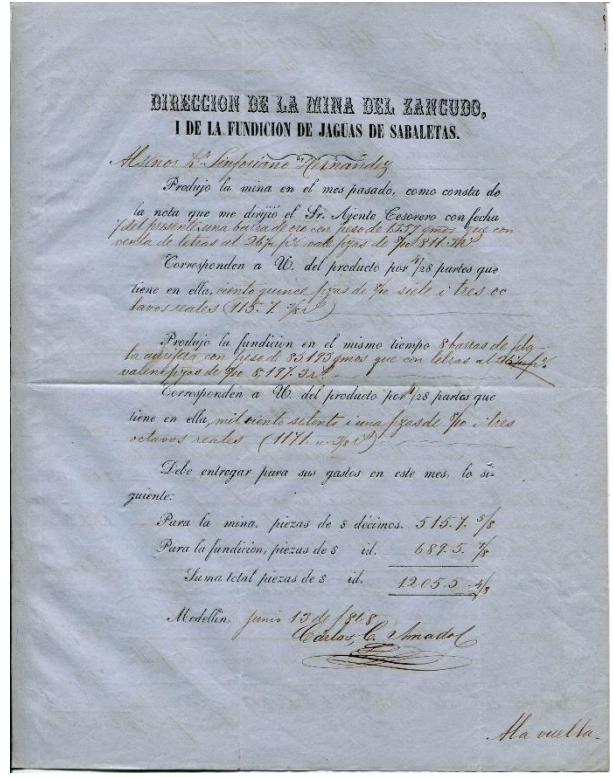 DIRECCION DE LA MINA DEL ZANCUDO,
I DE LA FUNDICION DE JAGUAS DE SABALETAS.
Al Sinforiano Hernández
Produjo la mina en el mes pasado, como consta de
la nota que me dirijió el Sr. Ajente Tesorero con fecha
del presente, una barra de oro con peso de gmos que con
venta de letras al vale pzas de
Corresponden a U. del producto por 4/28 partes que
tiene en ella, ciento quince pzas de siete i tres oc
tavos reales (115.7. 3/8
Produjo la fundicion en el mismo tiempo 8 barras de
ta aurífera con peso de gmos que con letras al
valen pzas de
Corresponden a U. del producto por 4/28 partes que
tiene en ella, mil ciento setenta i una pzas de i tres
octavos reales (1171.
Debe entregar para sus gastos en este mes, lo si-
guiente:
Para la mina, piezas de 8 décimos. 515.7. 5/8
Para la fundicion, piezas de 8 id. 689.5. 7/8
Suma total piezas de 8 id. 1205.5. 4/8
Medellin, junio 13 de
Carlos C. Amador
A la vuelta.